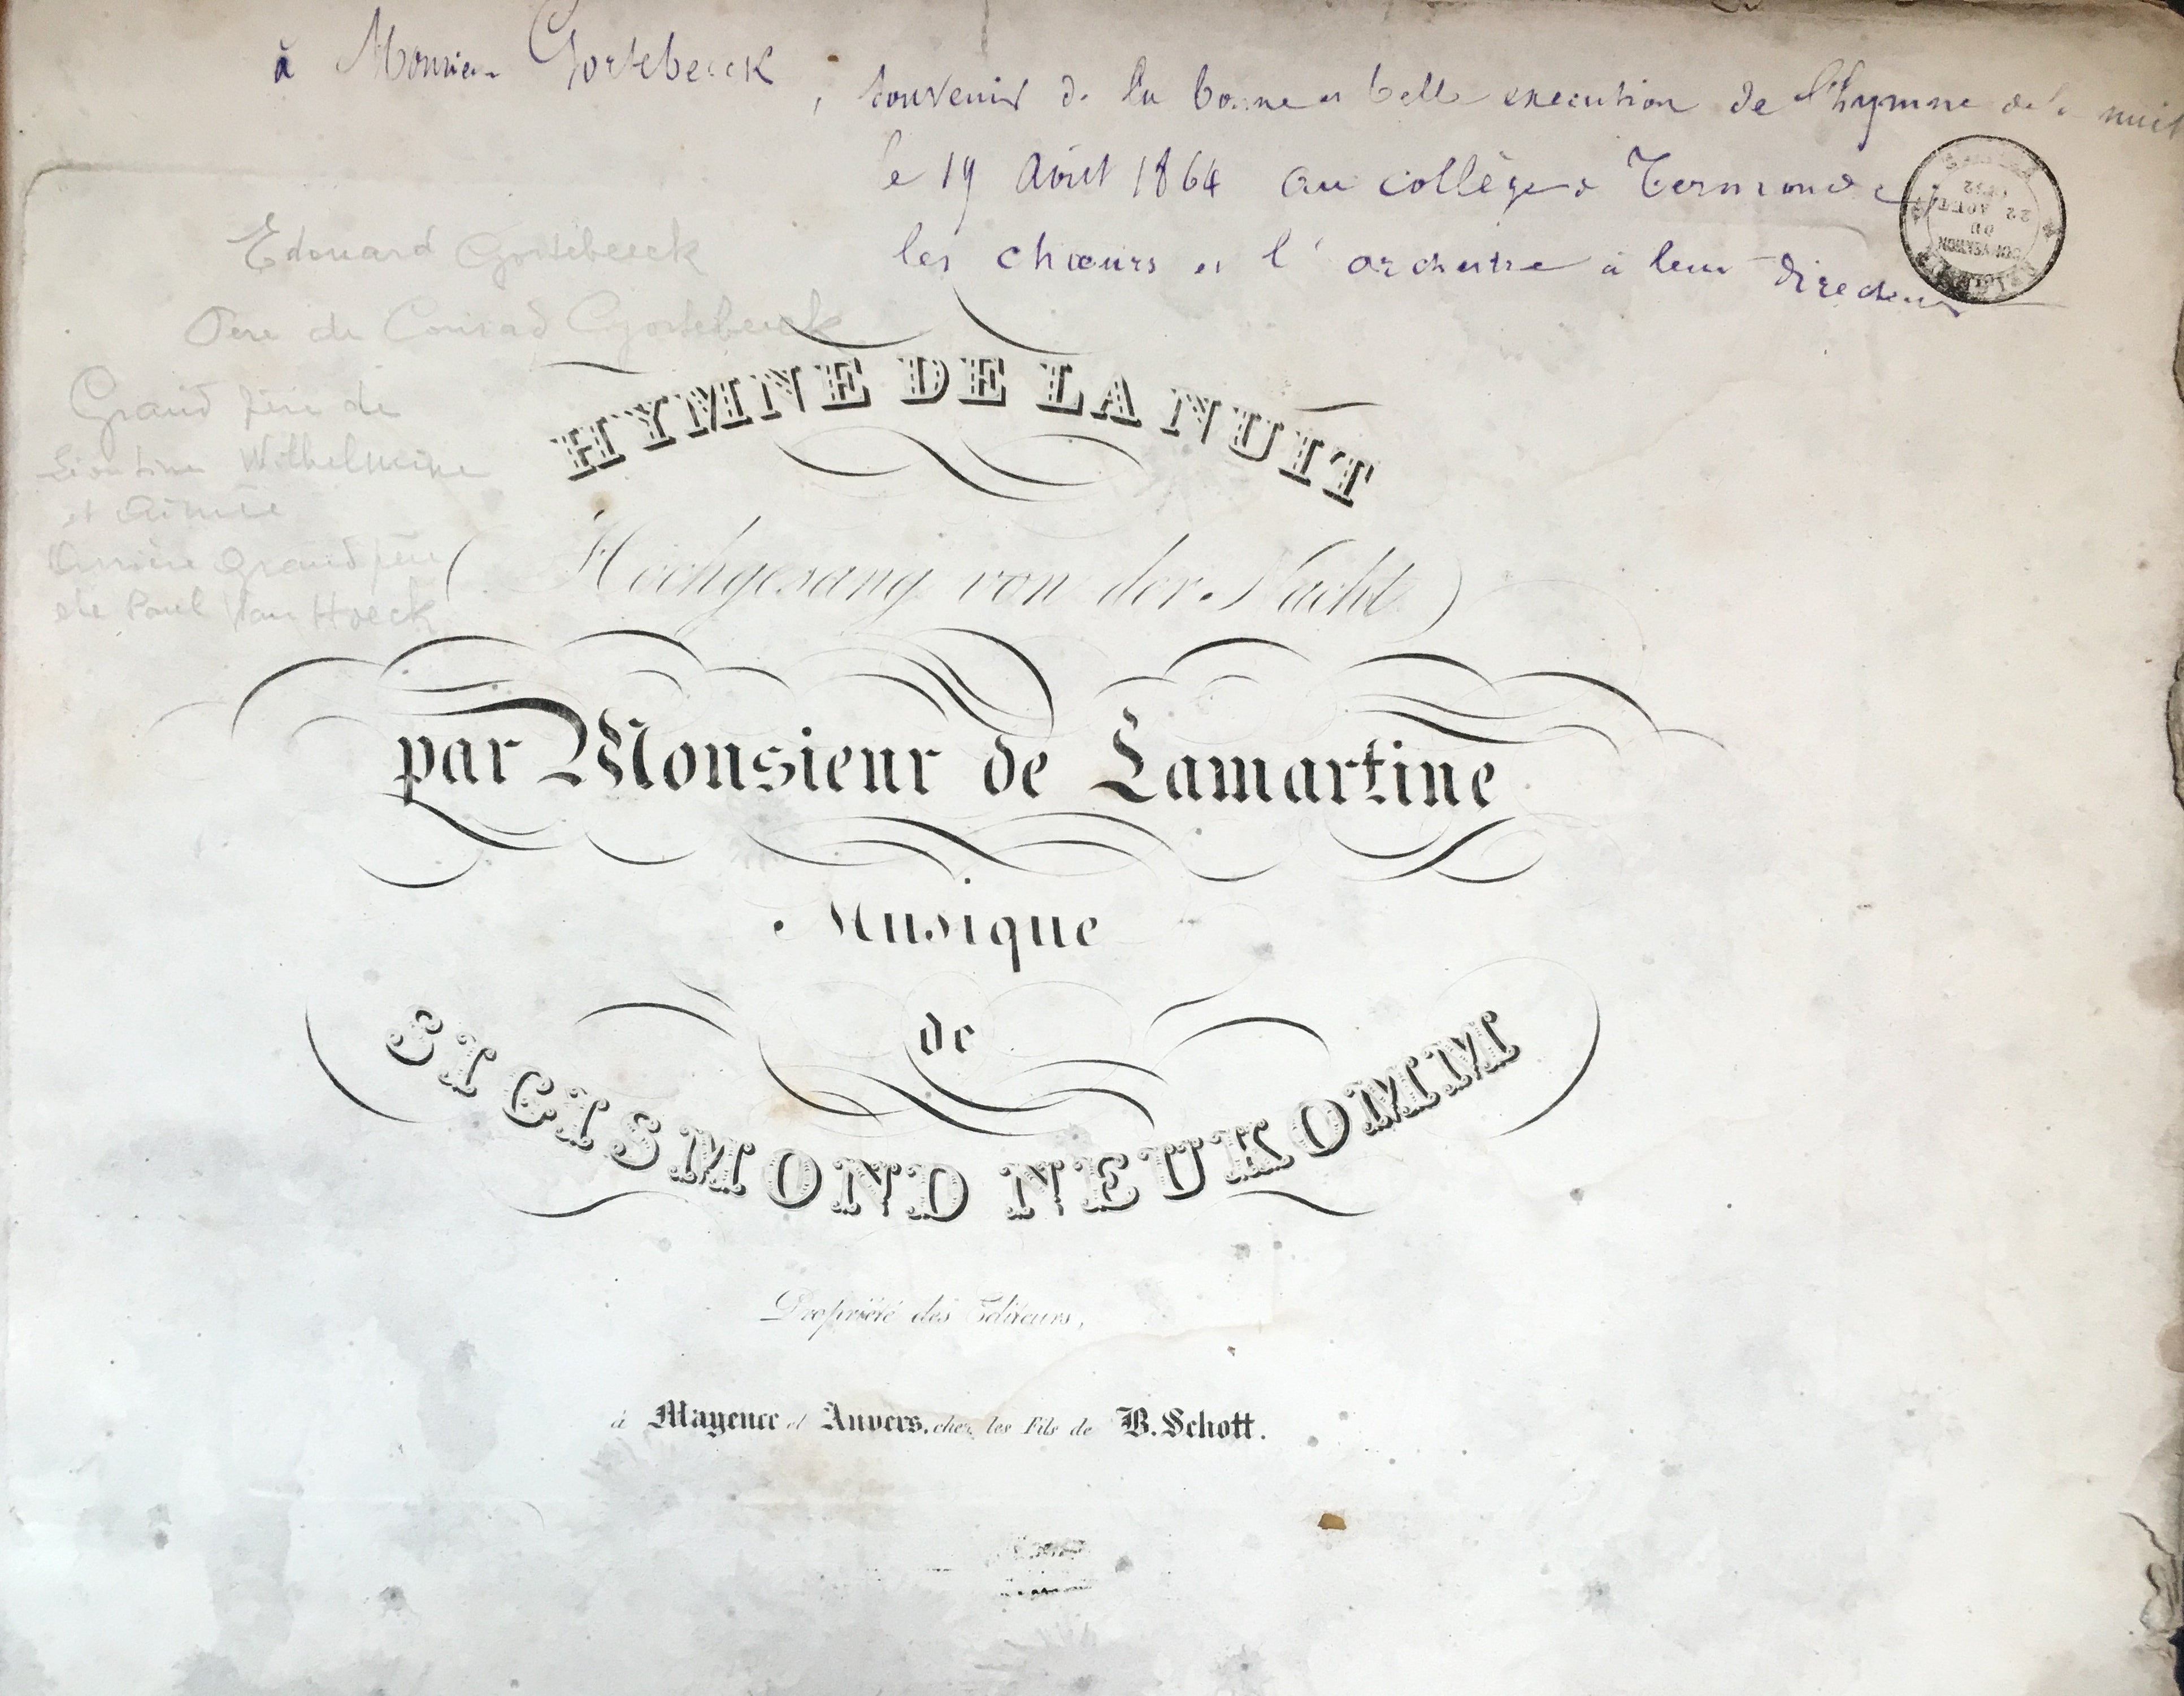 à Monsieur Gortebeeck, souvenir de la bonne et belle execution de l'hymne de la nuit
le 19 Août 1864 au collège de Termonde
les chœurs et l'orchestre à leur directeur
Edouard Gortebeeck
Père de Conrad Gortebeeck
Grand père de
Léontine Wilhelmine
et Aimée
Arrière grand père
de Paul Van Hoeck
HYMNE DE LA NUIT
(Hochgesang von der Nacht)
par Monsieur de Lamartine
Musique
de
SIGISMOND NEUKOMM
Propriété des Editeurs,
à Mayence et Anvers, chez les Fils de B. Schott.